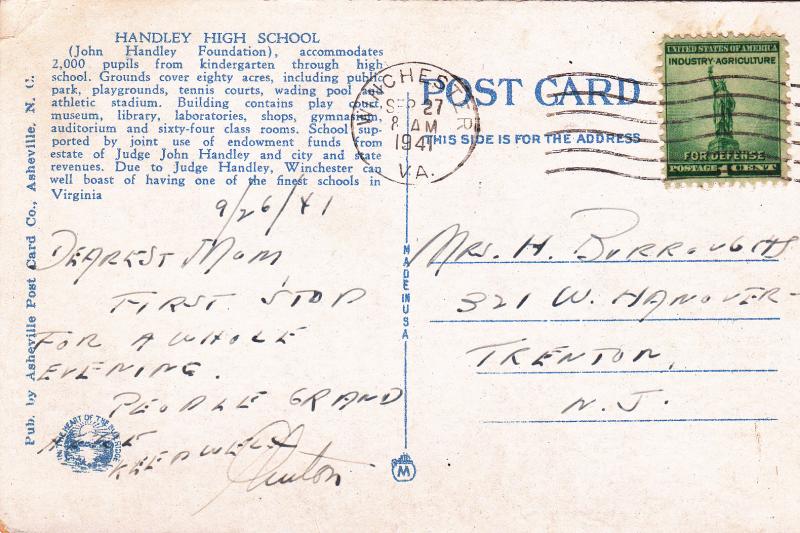 HANDLEY HIGH SCHOOL
(John Handley Foundation), accommodates
2,000 pupils from kindergarten through high
school. Grounds cover eighty acres, including public
park, playgrounds, tennis courts, wading pool and
athletic stadium. Building contains play court,
museum, library, laboratories, shops, gymnasium,
auditorium and sixty-four class rooms. School sup-
ported by joint use of endowment funds from
estate of Judge John Handley and city and state
revenues. Due to Judge Handley, Winchester can
well boast of having one of the finest schools in
Virginia
9/26/41
DEAREST MOM
FIRST STOP
FOR A WHOLE
EVENING.
PEOPLE GRAND
KEEP WELL
Clinton
Pub. by Asheville Post Card Co., Asheville, N. C.
IN THE HEART OF THE BLUE RIDGE
MADE IN USA
M
WINCHESTER
SEP 27
8 AM
1941
VA.
POST CARD
THIS SIDE IS FOR THE ADDRESS
UNITED STATES OF AMERICA
INDUSTRY-AGRICULTURE
FOR DEFENSE
POSTAGE 1 CENT
MRS. H. BURROUGHS
321 W. HANOVER-
TRENTON,
N. J.